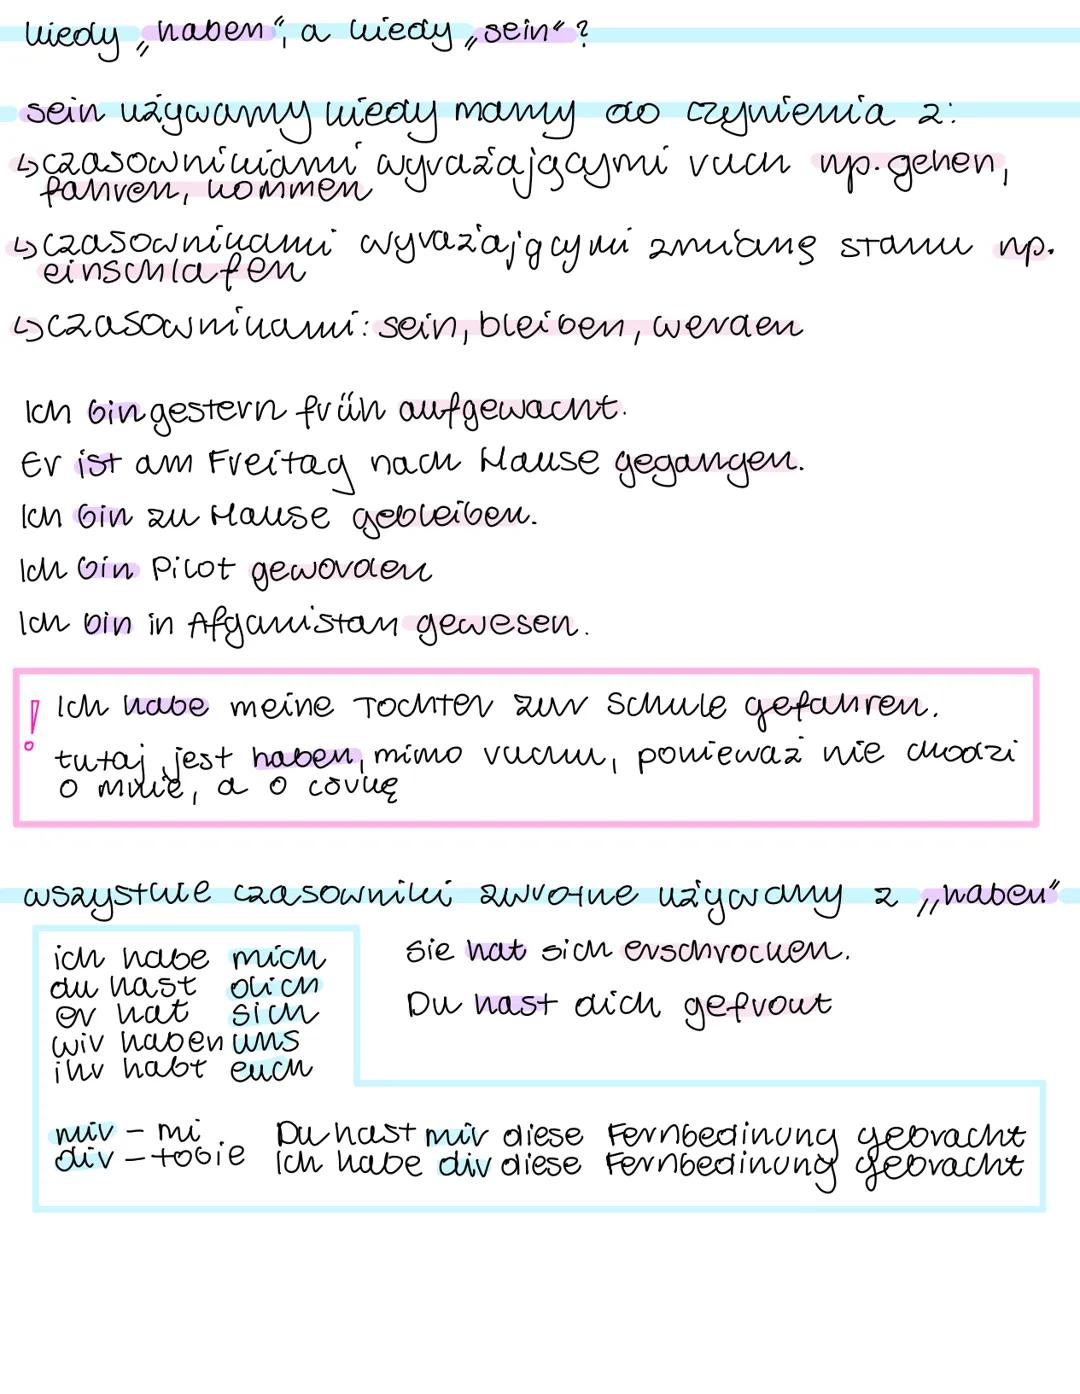 kiedy „haben", a kiedy „sein"?
sein używamy kiedy mamy do czynienia z:
↳ czasownikiami wyrażającymi ruch np. gehen,
fahren, kommen
↳ czasownikami wyrażającymi zmianę stanu np.
einschlafen
↳ czasownikami: sein, bleiben, werden
Ich bin gestern früh aufgewacht.
Er ist am Freitag nach Hause gegangen.
Ich bin zu Hause gebleiben.
Ich bin Pilot geworden
Ich bin in Afganistan gewesen.
! Ich habe meine Tochter zur Schule gefahren.
tutaj jest haben, mimo ruchu, ponieważ nie chodzi
o mnie, a o córkę
wszystkie czasowniki zwrotne używamy z „haben"
ich habe mich
du hast dich
er hat sich
wir haben uns
ihr habt euch
Sie hat sich erschrocken.
Du hast dich gefrout
mir - mi
dir - tobie
Du hast mir diese Fernbedinung gebracht
Ich habe dir diese Fernbedinung gebracht